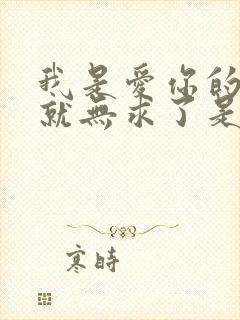 我是愛你的
就無求了是
寒時